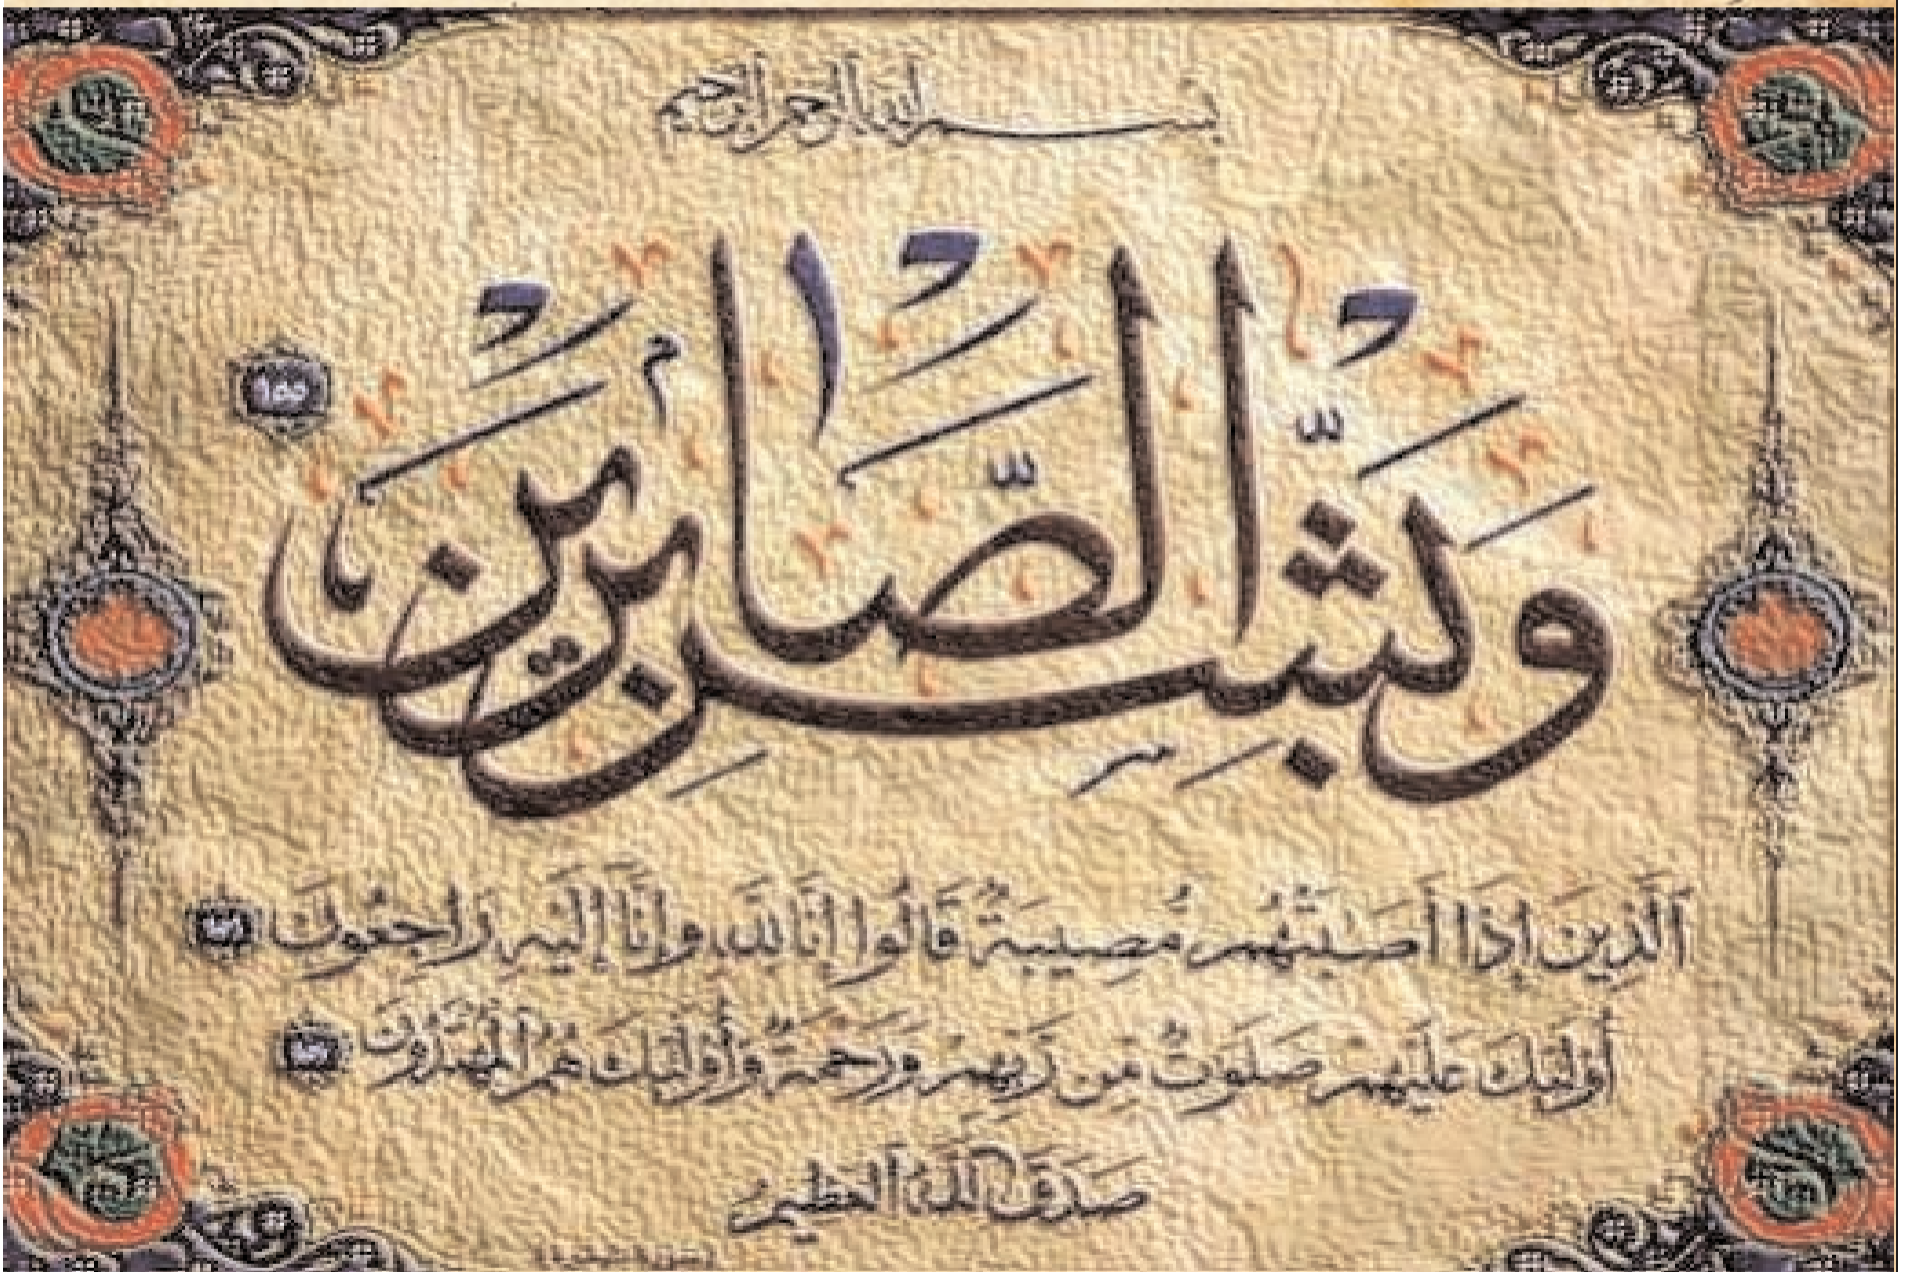 بسم الله الرحمن الرحيم
وَبَشِّرِ الصَّابِرِينَ ١٥٥
ٱلَّذِينَ إِذَآ أَصَٰبَتْهُم مُّصِيبَةٌ قَالُوٓا۟ إِنَّا لِلَّهِ وَإِنَّآ إِلَيْهِ رَٰجِعُونَ
أُو۟لَٰٓئِكَ عَلَيْهِمْ صَلَوَٰتٌ مِّن رَّبِّهِمْ وَرَحْمَةٌ وَأُو۟لَٰٓئِكَ هُمُ ٱلْمُهْتَدُونَ
صَدَقَ ٱللَّهُ ٱلْعَظِيمُ